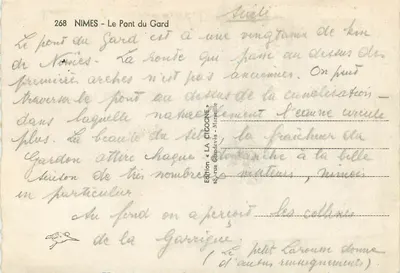 268 NIMES - Le Pont du Gard
Le pont du Gard est à une vingtaine de km
de Nîmes. La route qui passe au dessus des
premières arches n'est pas ancienne. On peut
traverser le pont au dessus de la canalisation
dans laquelle naturellement l'eau ne circule
plus. La beauté du site, la fraîcheur du
Gardon attire chaque dimanche à la belle
saison de très nombreux amateurs, nimois
en particulier
Au fond on aperçoit les collines
de la Garrigue.
( Le petit Larousse donne
d'autres renseignements)
EDITION « LA CIGOGNE »